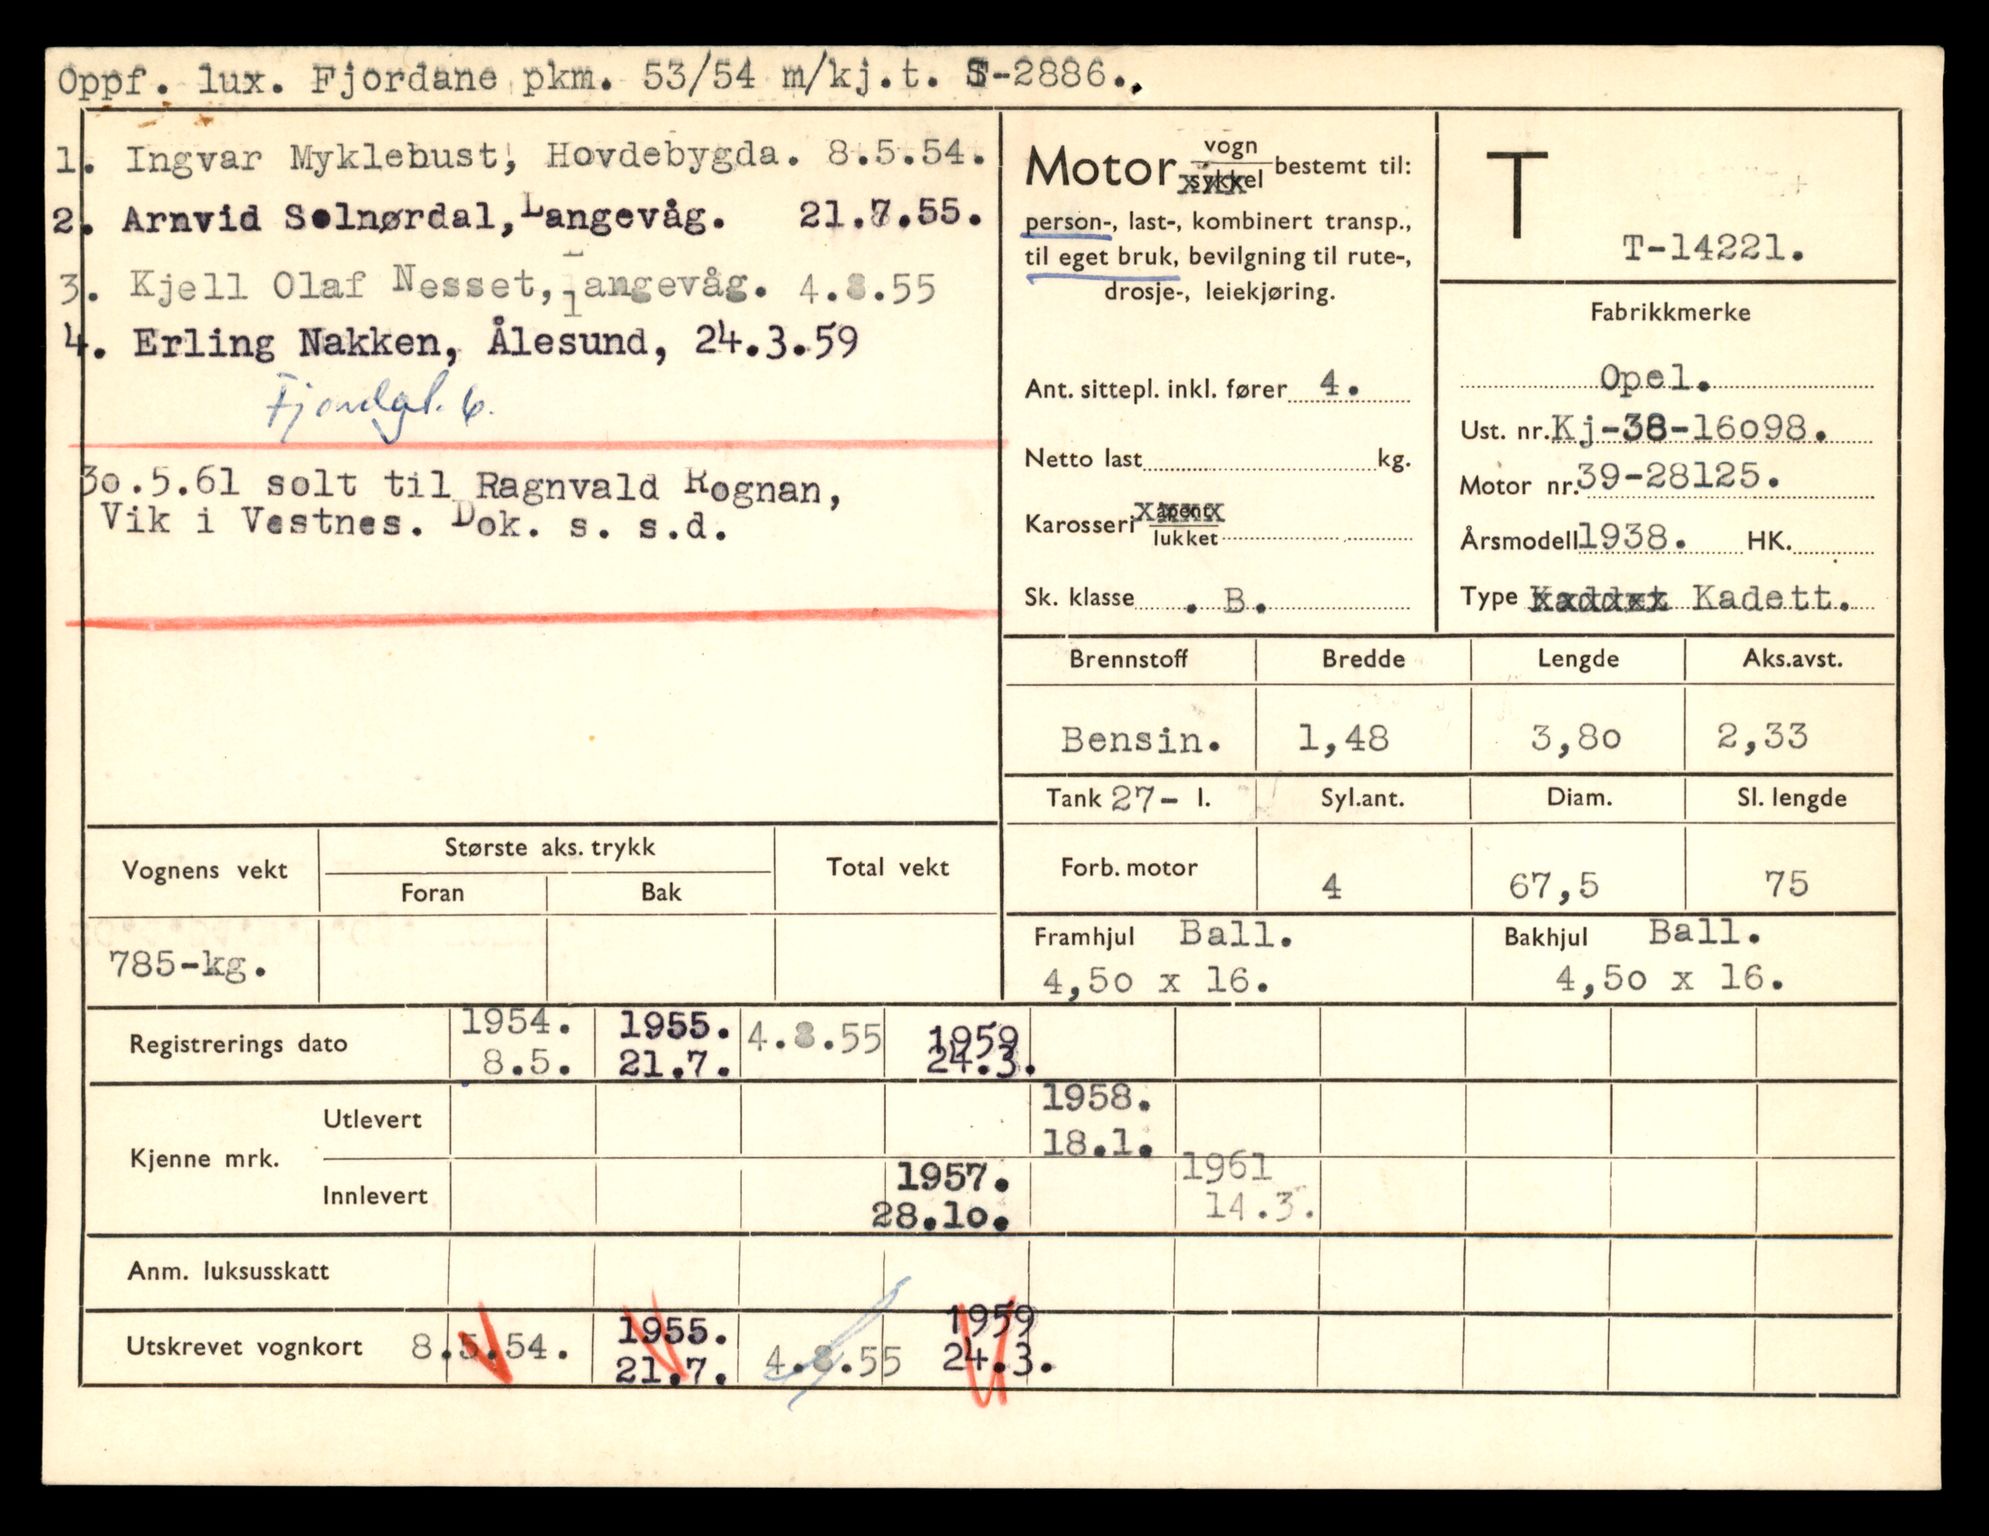 Oppf. lux. Fjordane pkm. 53/54 m/kj.t. S-2886.
1. Ingvar Myklebust, Hovdebygda. 8.5.54.
2. Arnvid Solnørdal, Langevåg. 21.7.55.
3. Kjell Olaf Nesset, Langevåg. 4.8.55
4. Erling Nakken, Ålesund, 24.3.59
Fjordgt. 6.
30.5.61 solt til Ragnvald Rognan,
Vik i Vestnes. Dok. s. s.d.
Motor vogn / sykkel bestemt til:
person-, last-, kombinert transp.,
til eget bruk, bevilgning til rute-,
drosje-, leiekjøring.
Ant. sittepl. inkl. fører 4.
Netto last kg.
Karosseri åpent / lukket
Sk. klasse . B.
T
T-14221.
Fabrikkmerke
Opel.
Ust. nr. Kj-38-16098.
Motor nr. 39-28125.
Årsmodell 1938. HK.
Type Kadett.
Brennstoff Bredde Lengde Aks.avst.
Bensin. 1,48 3,80 2,33
Tank 27- l. Syl.ant. Diam. Sl. lengde
Forb. motor 4 67,5 75
Framhjul Ball. Bakhjul Ball.
4,50 x 16. 4,50 x 16.
Vognens vekt Største aks. trykk Total vekt
Foran Bak
785-kg.
Registrerings dato 1954. 1955. 4.8.55 1959
8.5. 21.7. 24.3.
Kjenne mrk. Utlevert 1958.
18.1.
Innlevert 1957. 1961
28.10. 14.3.
Anm. luksusskatt
Utskrevet vognkort 8.5.54. 1955. 4.8.55 1959
21.7. 24.3.